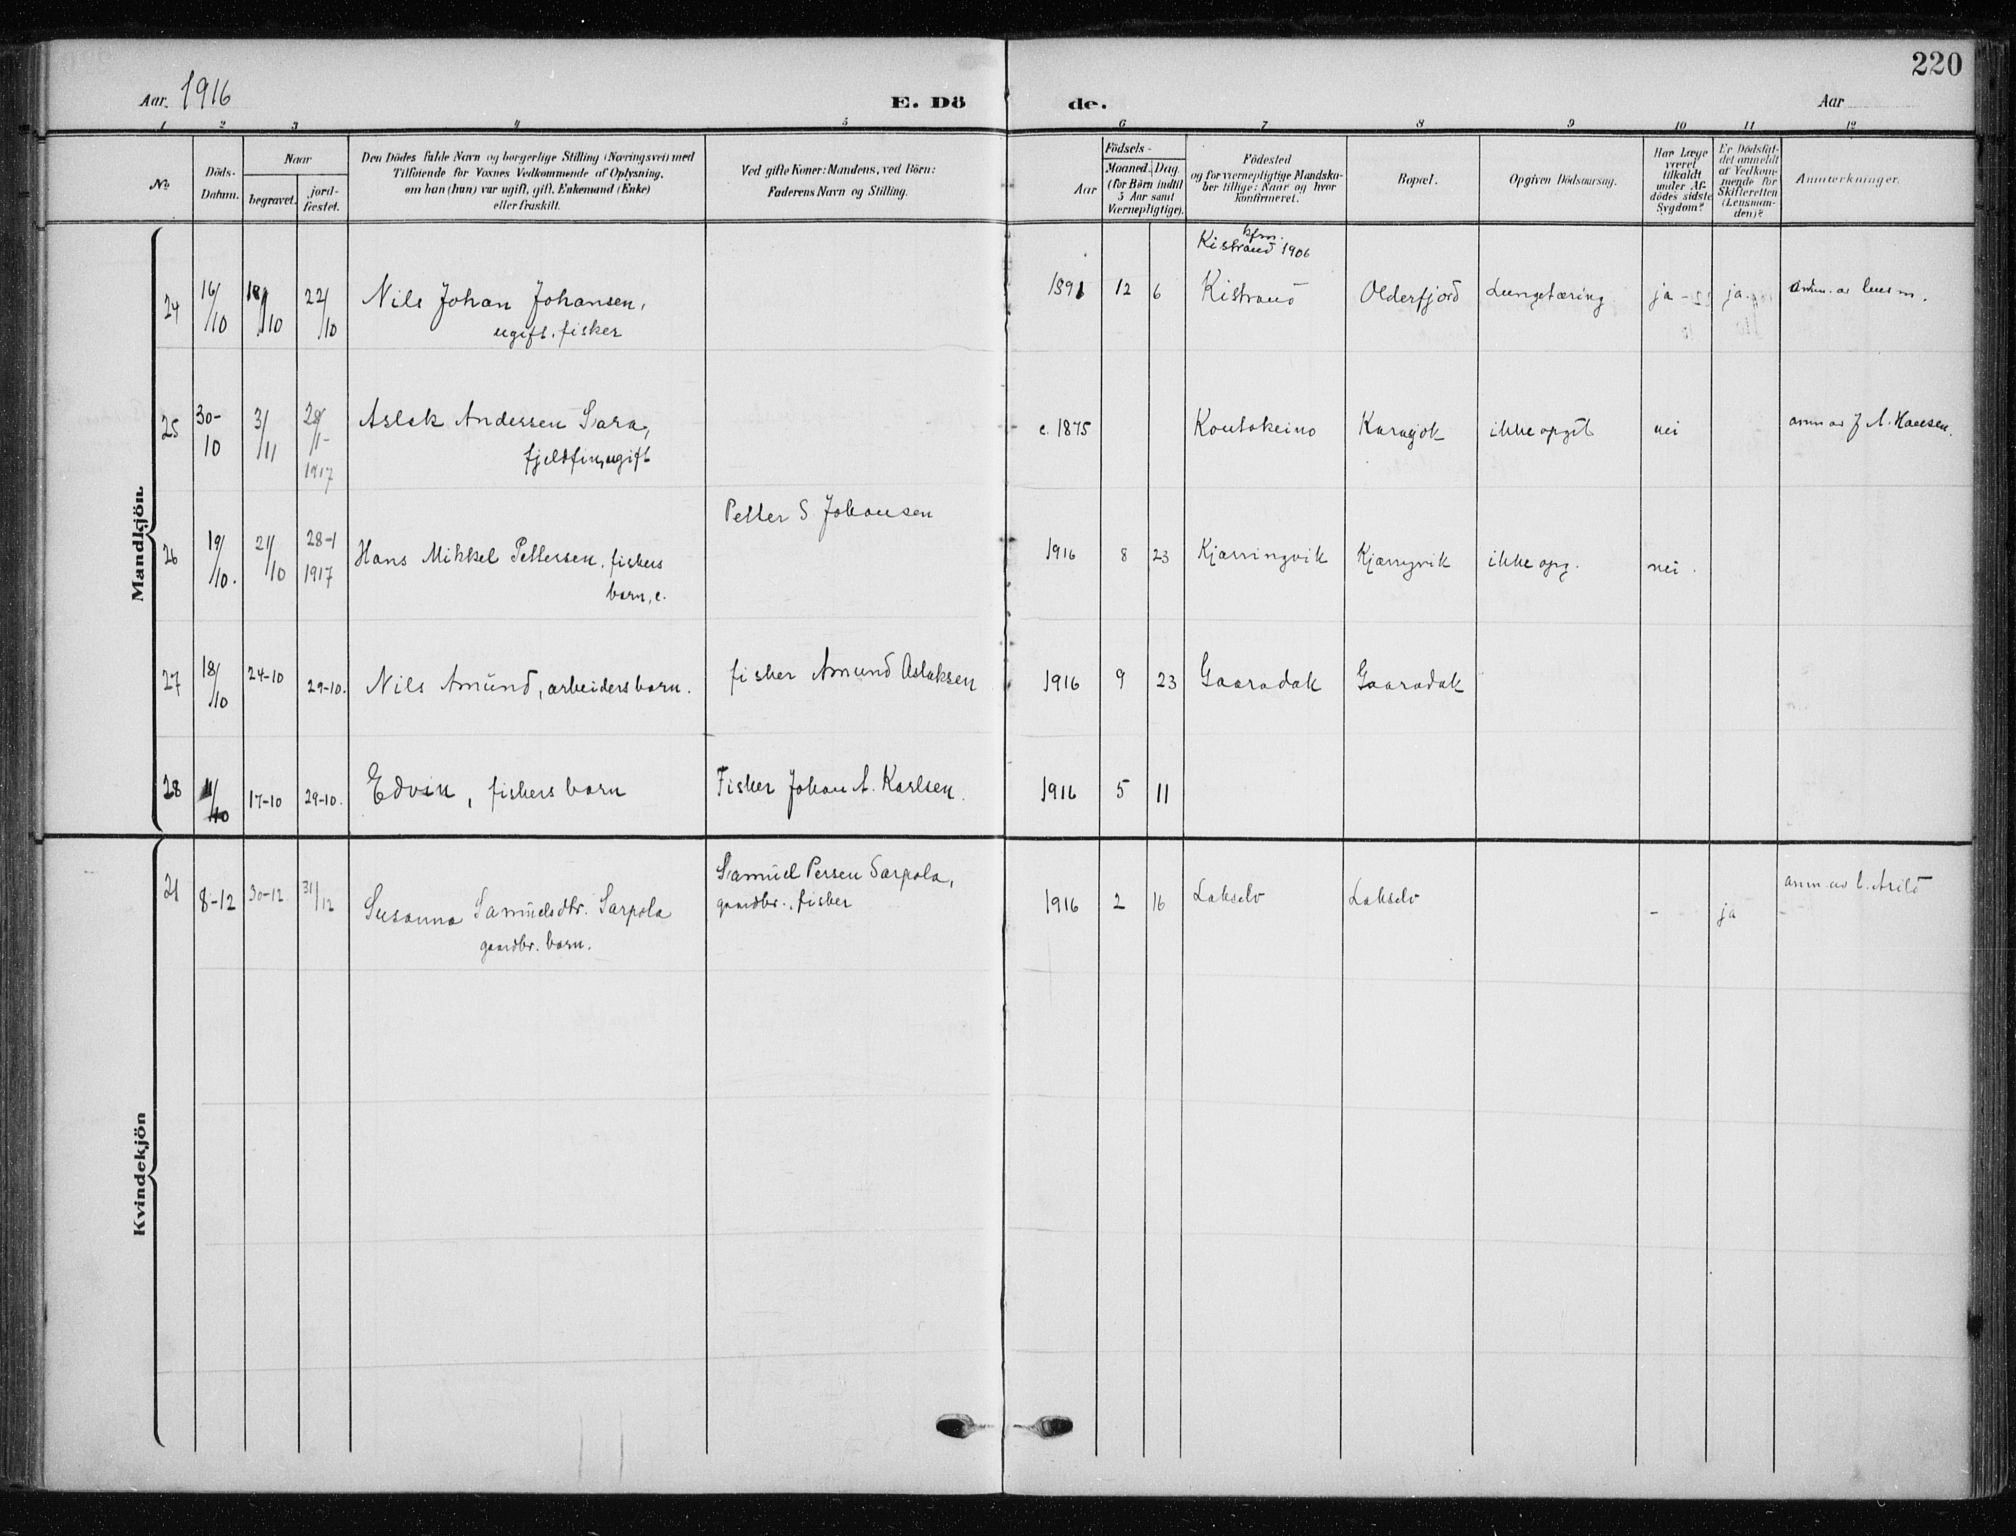 220
Aar. 1916
E. Dö
de.
Aar
1 2 3 4 5 6 7 8 9 10 11 12
No.
Döds-
Datum.
Naar
begravet.
jord-
fæstet.
Den Dödes fulde Navn og borgerlige Stilling (Næringsvei) med
Tilföiende for Voxnes Vedkommende af Oplysning,
om han (hun) var ugift, gift, Enkemand (Enke)
eller fraskilt.
Ved gifte Koner: Mandens, ved Börn:
Faderens Navn og Stilling.
Födsels-
Aar
Maaned. Dag
(for Börn indtil
5 Aar samt
Værnepligtige).
Födested
og for værnepligtige Mandska-
ber tillige: Naar og hvor
konfirmeret.
Bopæl.
Opgiven Dödsaarsag.
Har Læge
været
tilkaldt
under Af-
dödes sidste
Sygdom?
Er Dödsfal-
det anmeldt
af Vedkom-
mende for
Skifteretten
(Lensman-
den)?
Anmærkninger.
Mandkjön.
24 16/10 18/10 22/10 Nils Johan Johansen,
ugift. fisker
kfm.
Kistrand 1906
1891 12 6 Kistrand Olderfjord Lungetæring ja - ja.
25 30-10 3/11 28/1-1917 Aslak Andersen Sara,
fjeldfin, ugift
c. 1875 Koutokeino Karasjok ikke opgit nei anm av J A. Hansen.
26 19/10. 21/10 28-1 1917 Hans Mikkel Pettersen, fiskers
barn, e.
Petter S Johansen
1916 8 23 Kjærringvik Kjærrngvik ikke opg. nei.
27 18/10 24-10 29-10. Nils Amund, arbeiders barn. fisker Amund Aslaksen 1916 9 23 Gaaradak Gaaradak
28 11/10 17-10 29-10. Edvin, fiskers barn Fisker Johan A. Karlsen. 1916 5 11
Kvindekjön
21 8-12 30-12 31/12 Susanna Samuelsdtr. Sarpola
gaardbr. barn.
Samuel Persen Sarpola,
gaardbr., fisker
1916 2 16 Lakselv Lakselv - ja -